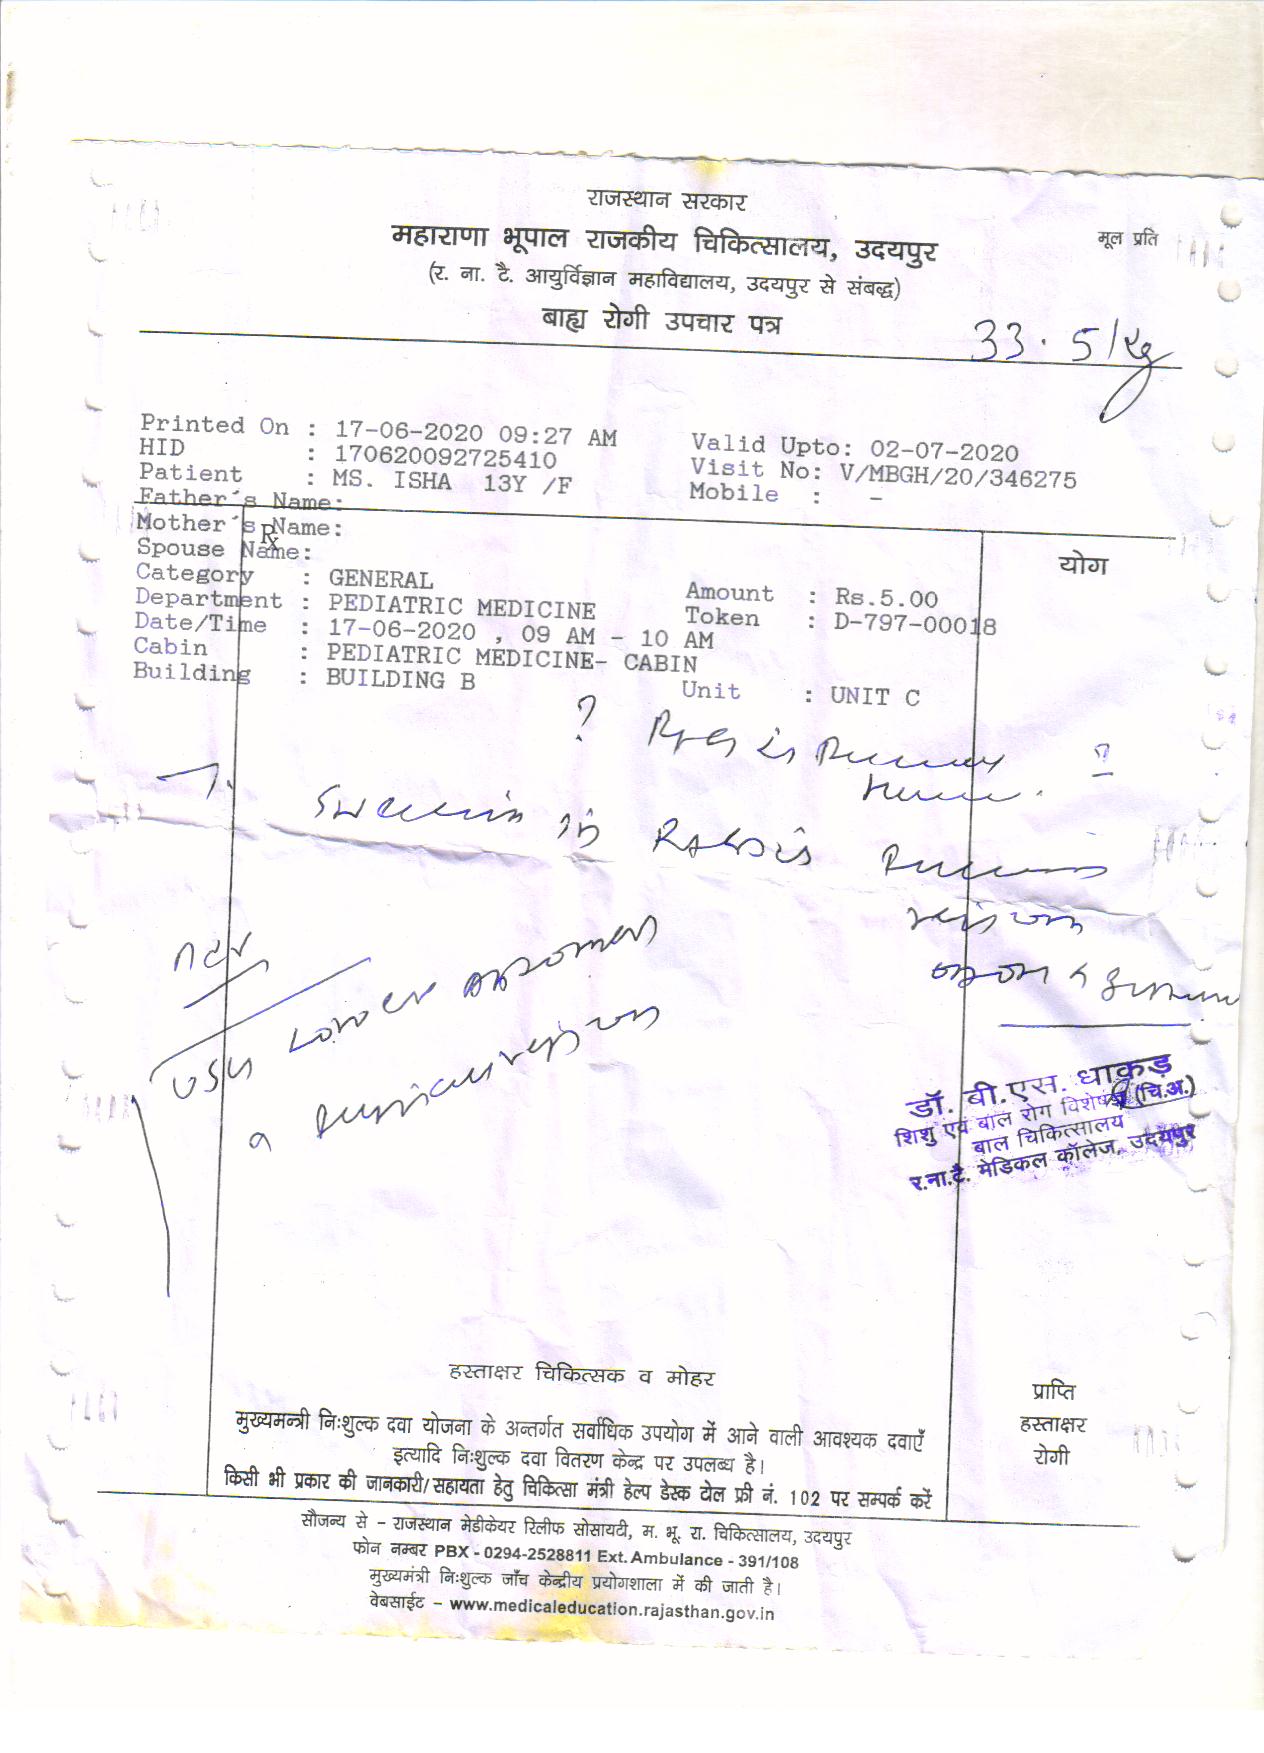 राजस्थान सरकार
महाराणा भूपाल राजकीय चिकित्सालय, उदयपुर
मूल प्रति
(र. ना. टै. आयुर्विज्ञान महाविद्यालय, उदयपुर से संबद्ध)
बाह्य रोगी उपचार पत्र
33.5/kg
Printed On : 17-06-2020 09:27 AM Valid Upto: 02-07-2020
HID : 170620092725410 Visit No: V/MBGH/20/346275
Patient : MS. ISHA 13Y /F Mobile : -
Father's Name:
Mother's Name:
Rx
Spouse Name:
योग
Category : GENERAL Amount : Rs.5.00
Department : PEDIATRIC MEDICINE Token : D-797-00018
Date/Time : 17-06-2020 , 09 AM - 10 AM
Cabin : PEDIATRIC MEDICINE- CABIN
Building : BUILDING B Unit : UNIT C
? ?
Swelling in
region
Adv
USG Lower abdomen
region
डॉ. बी.एस. धाकड़
शिशु एवं बाल रोग विशेषज्ञ (चि.अ.)
बाल चिकित्सालय
र.ना.टै. मेडिकल कॉलेज, उदयपुर
हस्ताक्षर चिकित्सक व मोहर
प्राप्ति
हस्ताक्षर
रोगी
मुख्यमन्त्री निःशुल्क दवा योजना के अन्तर्गत सर्वाधिक उपयोग में आने वाली आवश्यक दवाएँ
इत्यादि निःशुल्क दवा वितरण केन्द्र पर उपलब्ध है।
किसी भी प्रकार की जानकारी/सहायता हेतु चिकित्सा मंत्री हेल्प डेस्क टोल फ्री नं. 102 पर सम्पर्क करें
सौजन्य से - राजस्थान मेडीकेयर रिलीफ सोसायटी, म. भू. रा. चिकित्सालय, उदयपुर
फोन नम्बर PBX - 0294-2528811 Ext. Ambulance - 391/108
मुख्यमंत्री निःशुल्क जाँच केन्द्रीय प्रयोगशाला में की जाती है।
वेबसाईट - www.medicaleducation.rajasthan.gov.in